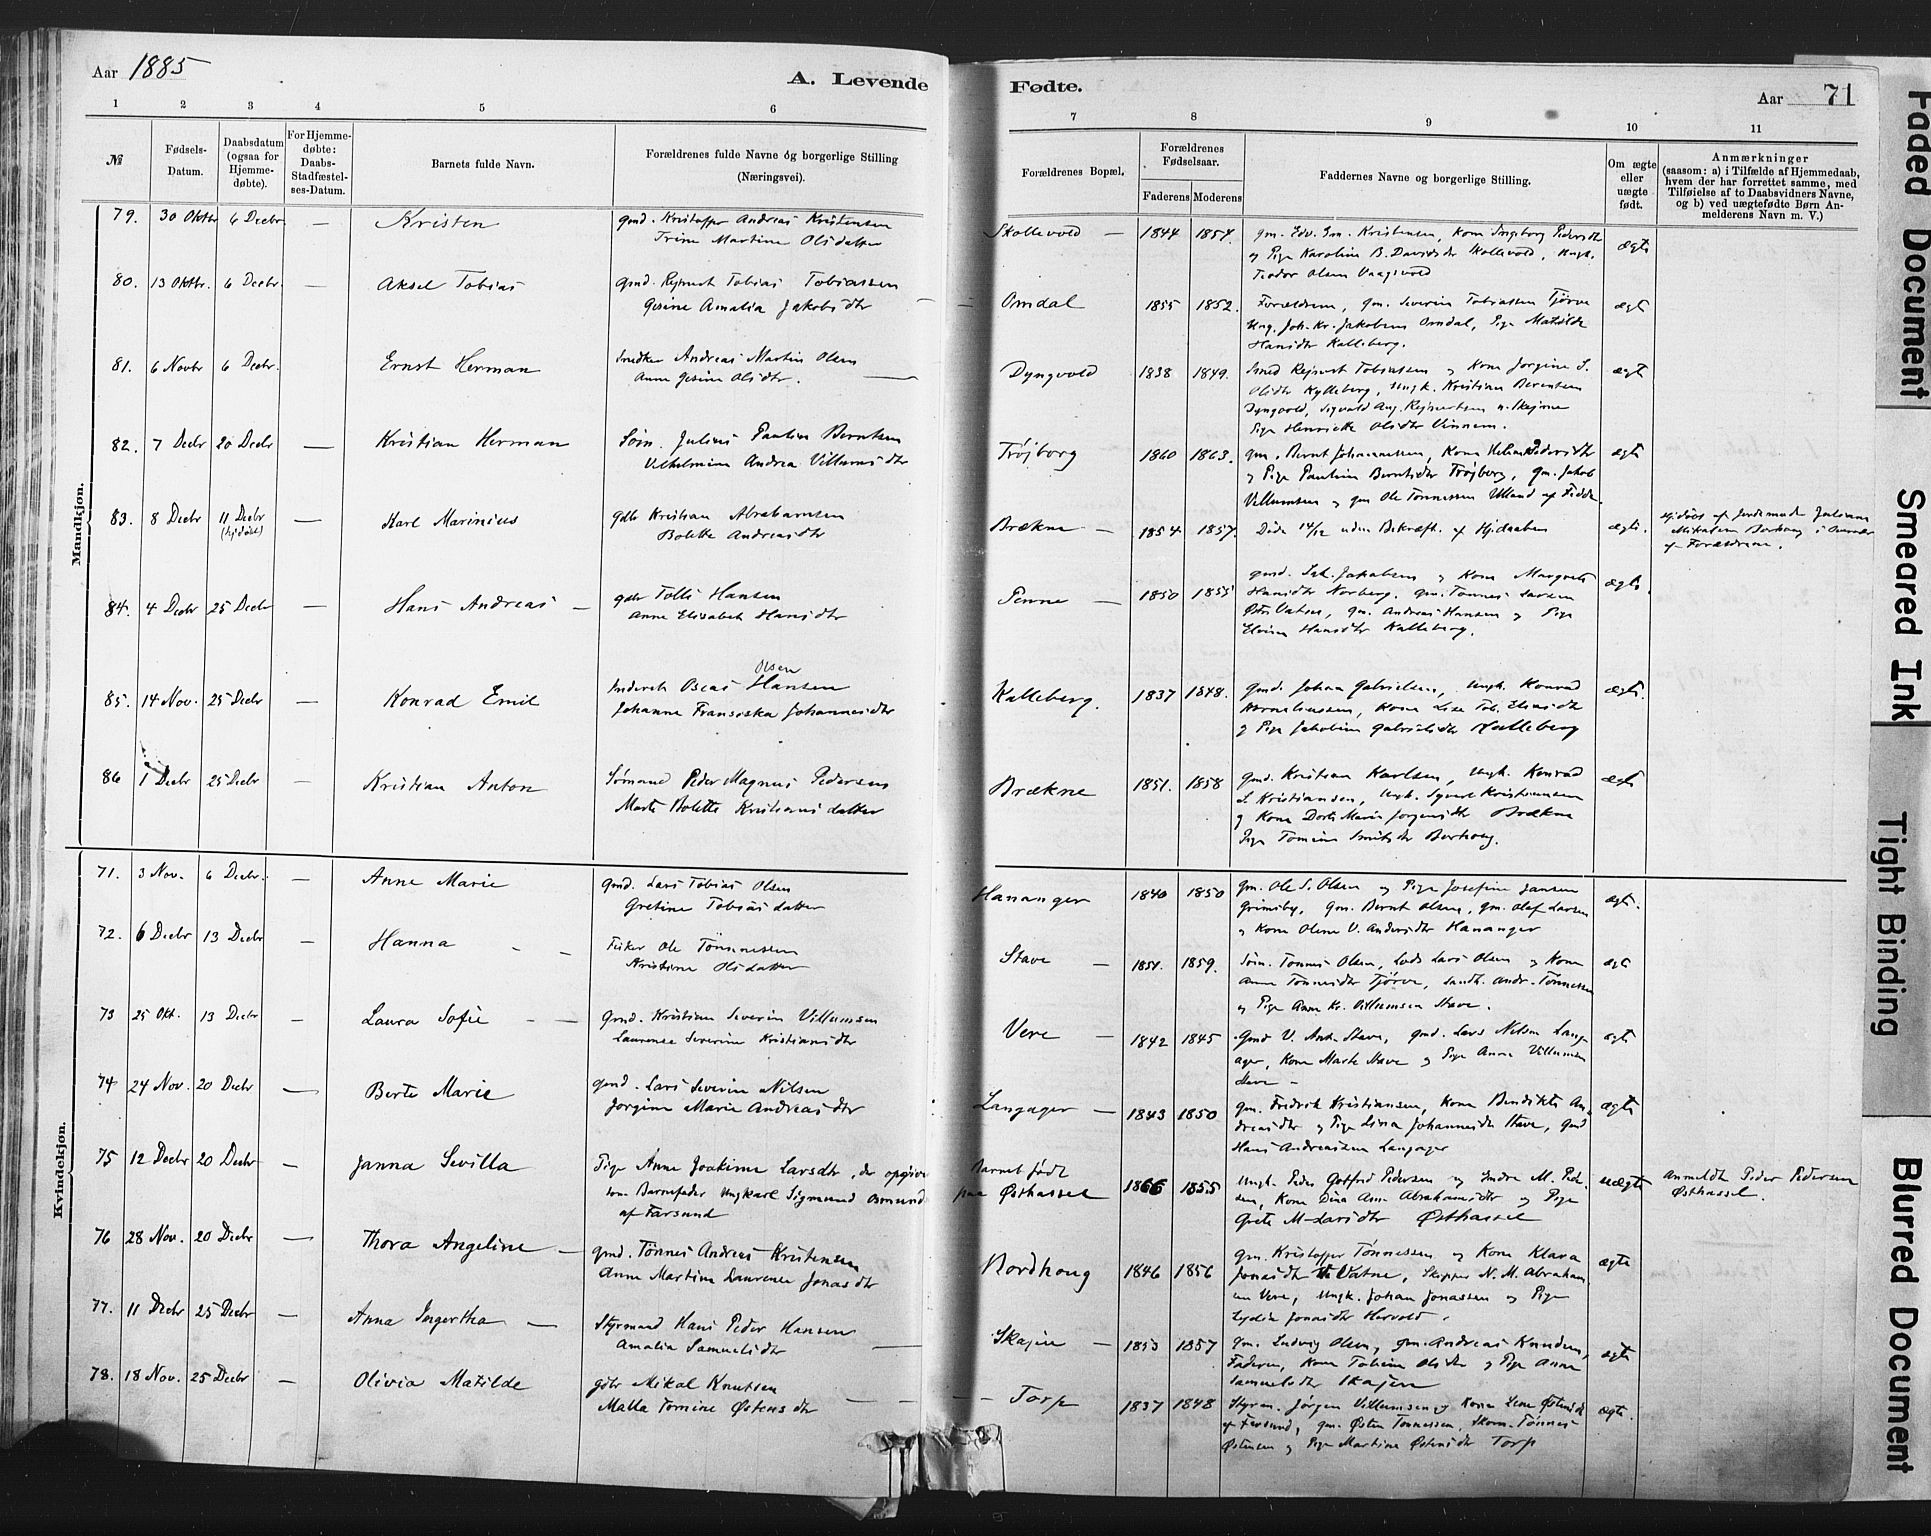 Aar 1885
A. Levende
Fødte.
Aar 71
1 2 3 4 5 6
7 8 9 10 11
№
Fødsels-
Datum.
Daabsdatum
(ogsaa for
Hjemme-
døbte).
For Hjemme-
døbte:
Daabs-
Stadfæstel-
ses-Datum.
Barnets fulde Navn.
Forældrenes fulde Navne og borgerlige Stilling
(Næringsvei).
Forældrenes Bopæl.
Forældrenes
Fødselsaar.
Faderens Moderens
Faddernes Navne og borgerlige Stilling.
Om ægte
eller
uægte
født.
Anmærkninger
(saasom: a) i Tilfælde af Hjemmedaab,
hvem der har forrettet samme, med
Tilføielse af to Daabsvidners Navne,
og b) ved uægtefødte Børn An-
melderens Navn m. V.)
Mandkjøn.
79. 30 Oktbr 6 Decbr. — Kristen
gmd. Kristoffer Andreas Kristensen
Trine Martine Olsdatter
Skollevold — 1844 1854.
gm. Edv. Em. Kristensen, Kone Ingeborg Pedersdtr
og Pige Karoline B. Davidsdtr Skollevold, Ungk.
Teodor Olsen Vaagsvold
ægte
80. 13 Oktbr. 6 Decbr. — Aksel Tobias
gmd. Rejnert Tobias Tobiassen
Gesine Amalia Jakobsdtr
Omdal 1855 1852.
Forældrene, gm. Severin Tobiassen Tjørve
Ung. Joh. Kr. Jakobsen Omdal, Pige Matilde
Hansdtr Kalleberg.
ægte
81. 6 Novbr 6 Decbr. — Ernst Herman
Snedker Andreas Martin Olsen
Anne Gesine Olsdtr.
Dyngvold 1838 1849.
Smed Rejnert Tobiassen og Kone Jørgine S.
Olsdtr Kylleberg, Ungk. Kristian Berentsen
Dyngvold, Sigvald Aug. Rejnertsen n. Skejme
Pige Henriette Olsdtr Vinnem.
ægte
82. 7 Decbr 20 Decbr — Kristian Herman
Søm. Julius Paulin Berntsen
Vilhelmine Andrea Villumsdtr
Trøjborg 1860 1863.
gm. Bernt Johannessen, Kone Helene Pedersdtr
og Pige Pauline Berntsdtr Trøjborg, gm. Jakob
Villumsen og gm Ole Tønnessen Ulland af Fidde.
ægte
83. 8 Decbr 11 Decbr — Karl Marinius
(hjdøbt)
gdbr Kristian Abrahamsen
Bolette Andreasdtr
Brækne — 1854 1857.
Døde 14/12 uden Bekræft. af Hjdaaben
ægte.
hjdøbt af Jordemod. Juliane
Mikalsen Borhoug i Overvær
af Forældrene.
84. 4 Decbr 25 Decbr — Hans Andreas —
gdbr Tollis Hansen
Anne Elisabeth Hansdtr
Penne — 1850 1855
gmd. Sak. Jakobsen og Kone Margrete
Hansdtr Norberg, gm. Tønnes Larsen
Østr. Vatne, gm. Andreas Hansen og Pige
Elvine Hansdtr Kalleberg.
ægte.
85. 14 Nov. 25 Decbr — Konrad Emil
Olsen
Inderst Oseas Hansen
Johanne Fransiska Johannesdtr
Kalleberg. 1837 1848.
gmd. Johan Gabrielsen, Ungk. Konrad
Korneliussen, Kone Lise Tob. Eliasdtr
og Pige Jakobine Gabrielsdtr Kalleberg
ægte.
86 1 Decbr 25 Decbr — Kristian Anton
Sømand Peder Magnus Pedersen
Marte Bolette Kristiansdatter
Brækne 1851. 1858
gmd. Kristian Karlsen, Ungk. Konrad
S. Kristiansen, Ungk. Syvert Kristiansen
og Kone Dorte Marie Jørgensdtr Brækne
Pige Tomine Smitsdtr Borhoug.
ægte
Kvindekjøn.
71. 3 Nov. 6 Decbr. — Anne Marie
gmd. Lars Tobias Olsen
Gretine Tobiasdatter
Hananger 1840 1850
gm. Ole S. Olsen og Pige Josefine Jansen
Grimsby, gm. Bernt Olsen, gm. Olaf Larsen
og Kone Olene V. Andersdtr Hananger
ægte.
72. 6 Decbr 13 Decbr — Hanna
Fisker Ole Tønnessen
Kristine Olsdatter
Stave — 1851. 1859.
Søm. Tønnes Olsen, Lods Lars Olsen og Kone
Anne Tønnesdtr Tjørve, Andr. Tønnessen
og Pige Anne Kr. Villumsen Stave.
ægte
73 25 Okt. 13 Decbr — Laura Sofie
gmd. Kristian Severin Villumsen
Laurense Severine Kristiansdtr
Vere — 1842 1845
gmd V. And. Stave, gmd. Lars Nilsen Lang-
ager, Kone Marte Stave og Pige Anne Villumsen
Stave —
ægte
74 24 Nov. 20 Decbr — Berte Marie
gmd. Lars Severin Nilsen
Jørgine Marie Andreasdtr
Langager — 1843 1850
gm. Fredrik Kristiansen, Kone Bendikte An-
dreasdtr og Pige Lina Johannesdtr Stave, gmd
Hans Andreassen Langager
ægte
75 12 Decbr 20 Decbr — Janna Sevilla
Pige Anne Joakime Larsdtr, der opgiver
som Barnefader Ungkarl Sigmund Osmund
af Farsund
Barnet født
paa Østhassel 1866 1855
Ungk. Peder Gotfred Pedersen og Endre M. Peder-
sen, Kone Dina Ann. Abrahamsdtr og Pige
Grete M. Larsdtr Østhassel
uægte
anmeldt Peder Pedersen
Østhassel.
76 28 Nov. 20 Decbr — Thora Angeline —
gmd. Tønnes Andreas Kristensen
Anne Martine Laurense Jonasdtr
Nordhoug 1846 1856
gm. Kristoffer Tønnessen og Kone Klara
Jonasdtr Vatne, Skipper N. M. Abraham-
sen Vere, Ungk. Johan Jonassen og Pige
Lydia Jonasdtr Hervold.
ægte
77. 11 Decbr 25 Decbr — Anna Ingertha —
Styrmand Hans Peder Hansen
Amalia Samuelsdtr
Skajen — 1853 1857
gm. Ludvig Olsen, gm. Andreas Knudsen,
Faderen, Kone Tobine Olsdtr og Pige Anne
Samuelsdtr Skajen
ægte
78. 18 Nov. 25 Decbr — Olivia Matilde
gdbr Mikal Knutsen
Malla Tomine Østensdtr
Torp 1837 1848
Styrm. Jørgen Villumsen og Kone Lene Østensdtr
af Farsund, gm. Østen Tønnessen, Skom. Tønnes
Østensen og Pige Martine Østensdtr Torp
ægte.
Faded Document
Smeared Ink
Tight Binding
Blurred Document